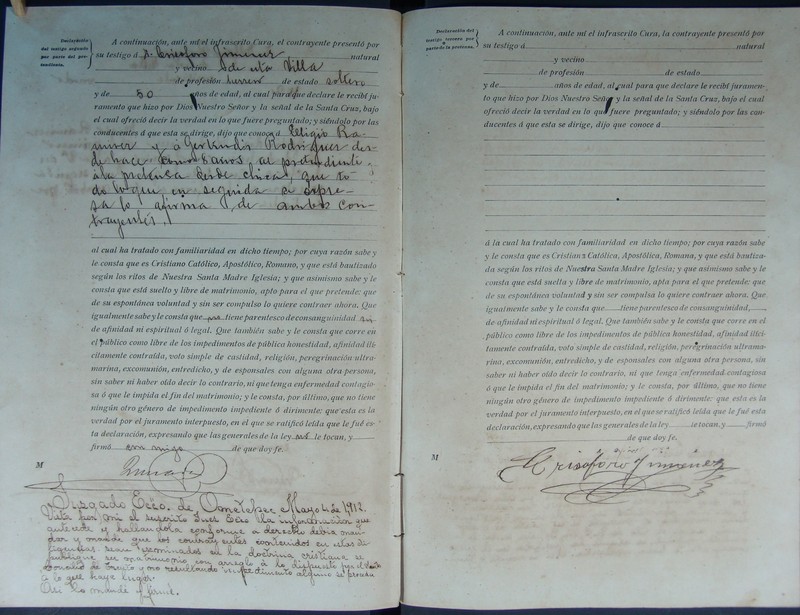 Declaración
del testigo segundo
por parte del pre-
tendiente.
A continuación, ante mí el infrascrito Cura, el contrayente presentó por
su testigo á D. Crisóforo Jimenez natural
y vecino de esta Villa
de profesión herrero de estado soltero
y de 50 años de edad, al cual para que declare le recibí ju-
ramento que hizo por Dios Nuestro Señor y la señal de la Santa Cruz, bajo
el cual ofreció decir la verdad en lo que fuere preguntado; y siéndolo por las
conducentes á que esta se dirige, dijo que conoce á Eligio Ra-
mirez y á Gertrudis Rodriguez des-
de hace como 8 años, al pretendiente,
a la pretensa desde chica, que to-
do lo que en seguida se expre-
sa lo afirma de ambos con-
trayentes.
al cual ha tratado con familiaridad en dicho tiempo; por cuya razón sabe y
le consta que es Cristiano Católico, Apostólico, Romano, y que está bautizado
según los ritos de Nuestra Santa Madre Iglesia; y que asimismo sabe y le
consta que está suelto y libre de matrimonio, apto para el que pretende: que
de su espontánea voluntad y sin ser compulso lo quiere contraer ahora. Que
igualmente sabe y le consta que no tiene parentesco de consanguinidad, ni
de afinidad ni espiritual ó legal. Que también sabe y le consta que corre en
el público como libre de los impedimentos de pública honestidad, afinidad ilí-
citamente contraída, voto simple de castidad, religión, peregrinación ultra-
marina, excomunión, entredicho, y de esponsales con alguna otra persona,
sin saber ni haber oído decir lo contrario, ni que tenga enfermedad contagio-
sa ó que le impida el fin del matrimonio; y le consta, por último, que no tiene
ningún otro género de impedimento impediente ó dirimente: que esta es la
verdad por el juramento interpuesto, en el que se ratificó leída que le fué es-
ta declaración, expresando que las generales de la ley no le tocan, y
firmó conmigo de que doy fe.
M
Juzgado Ecco. de Ometepec Mayo 4 de 1912.
Vista por mí el suscrito Juez Ecco la información que
antecede y hallándola conforme a derecho debía man-
dar y mandé que los contrayentes contenidos en estas di-
ligencias sean examinados en la doctrina cristiana se
publique su matrimonio con arreglo á lo dispuesto por el Santo
Concilio de Trento y no resultando impedimento alguno se proceda
a lo que haya lugar.
Así lo mandé y firmé.
Declaración del
testigo tercero por
parte de la pretensa.
A continuación, ante mí el infrascrito Cura, la contrayente presentó por
su testigo á natural
y vecino
de profesión de estado
y de años de edad, al cual para que declare le recibí juramen-
to que hizo por Dios Nuestro Señor y la señal de la Santa Cruz, bajo el cual
ofreció decir la verdad en lo que fuere preguntado; y siéndolo por las con-
ducentes á que esta se dirige, dijo que conoce á
á la cual ha tratado con familiaridad en dicho tiempo; por cuya razón sabe
y le consta que es Cristiana Católica, Apostólica, Romana, y que está bautiza-
da según los ritos de Nuestra Santa Madre Iglesia; y que asimismo sabe y le
consta que está suelta y libre de matrimonio, apta para el que pretende: que
de su espontánea voluntad y sin ser compulsa lo quiere contraer ahora. Que
igualmente sabe y le consta que tiene parentesco de consanguinidad,
de afinidad ni espiritual ó legal. Que también sabe y le consta que corre en el
público como libre de los impedimentos de pública honestidad, afinidad ilíci-
tamente contraída, voto simple de castidad, religión, peregrinación ultrama-
rina, excomunión, entredicho, y de esponsales con alguna otra persona, sin
saber ni haber oído decir lo contrario, ni que tenga enfermedad contagiosa
ó que le impida el fin del matrimonio; y le consta, por último, que no tiene
ningún otro género de impedimento impediente ó dirimente: que esta es la
verdad por el juramento interpuesto, en el que se ratificó leída que le fué esta
declaración, expresando que las generales de la ley le tocan, y firmó
de que doy fe.
M
Crisóforo Jimenez